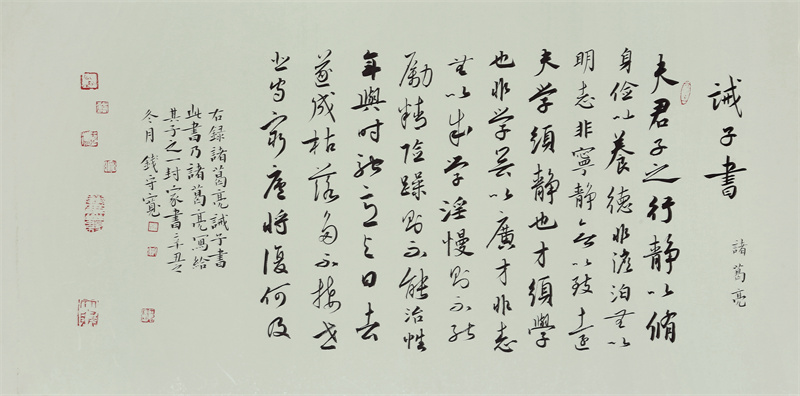 誡子書
諸葛亮
夫君子之行靜以脩
身儉以養德非澹泊無以
明志非寧靜無以致遠
夫學須靜也才須學
也非學無以廣才非志
無以成學淫慢則不能
勵精險躁則不能治性
年與時馳意與日去
遂成枯落多不接世
悲守窮廬將復何及
右録諸葛亮誡子書
此書乃諸葛亮寫給
其子之一封家書辛丑之
冬月錢守寬